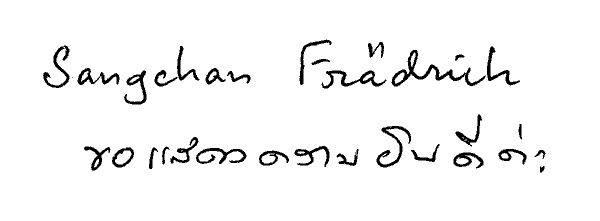 Sangchan Frädrich
ขอแสดงความยินดีค่ะ